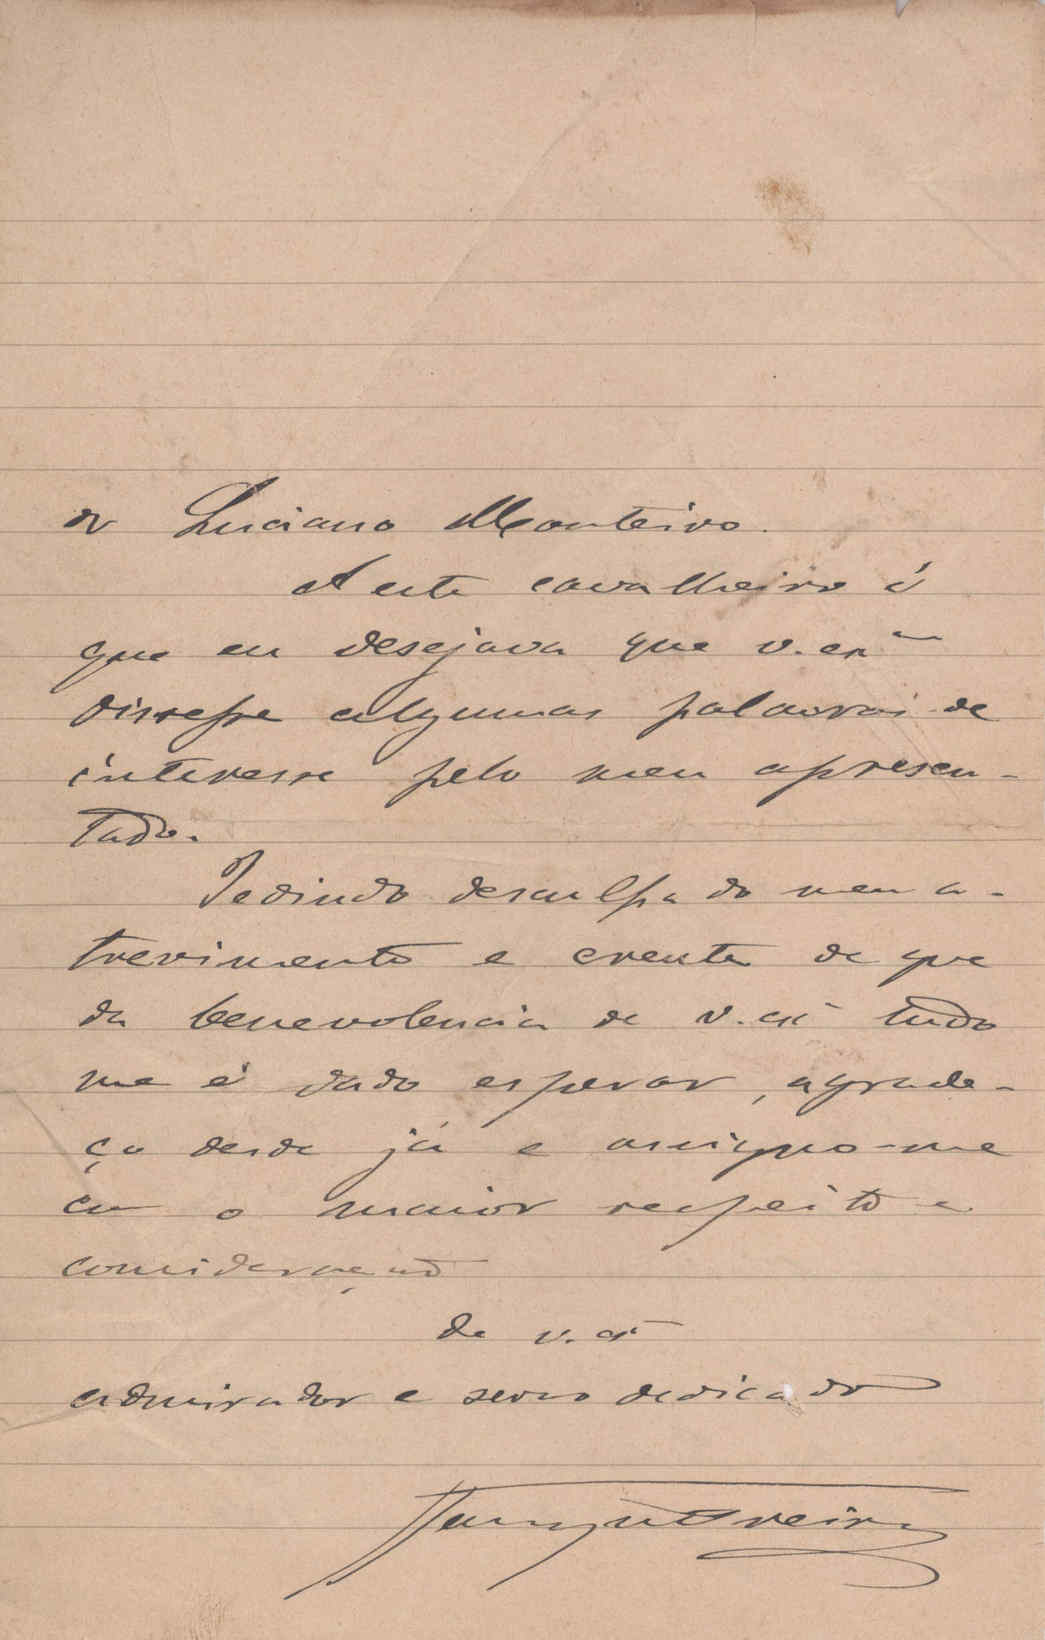 dr Luciano Monteiro.
A este cavalheiro é
que eu desejava que v. exª
dissesse algumas palavras de
interesse pelo meu apresen-
tado.
Pedindo desculpa do meu a-
trevimento e crente de que
da benevolencia de v. exª tudo
me é dado esperar, agrade-
ço desde já e assigno-me
co o maior respeito e
consideração
De v. exª
admirador e servo dedicado